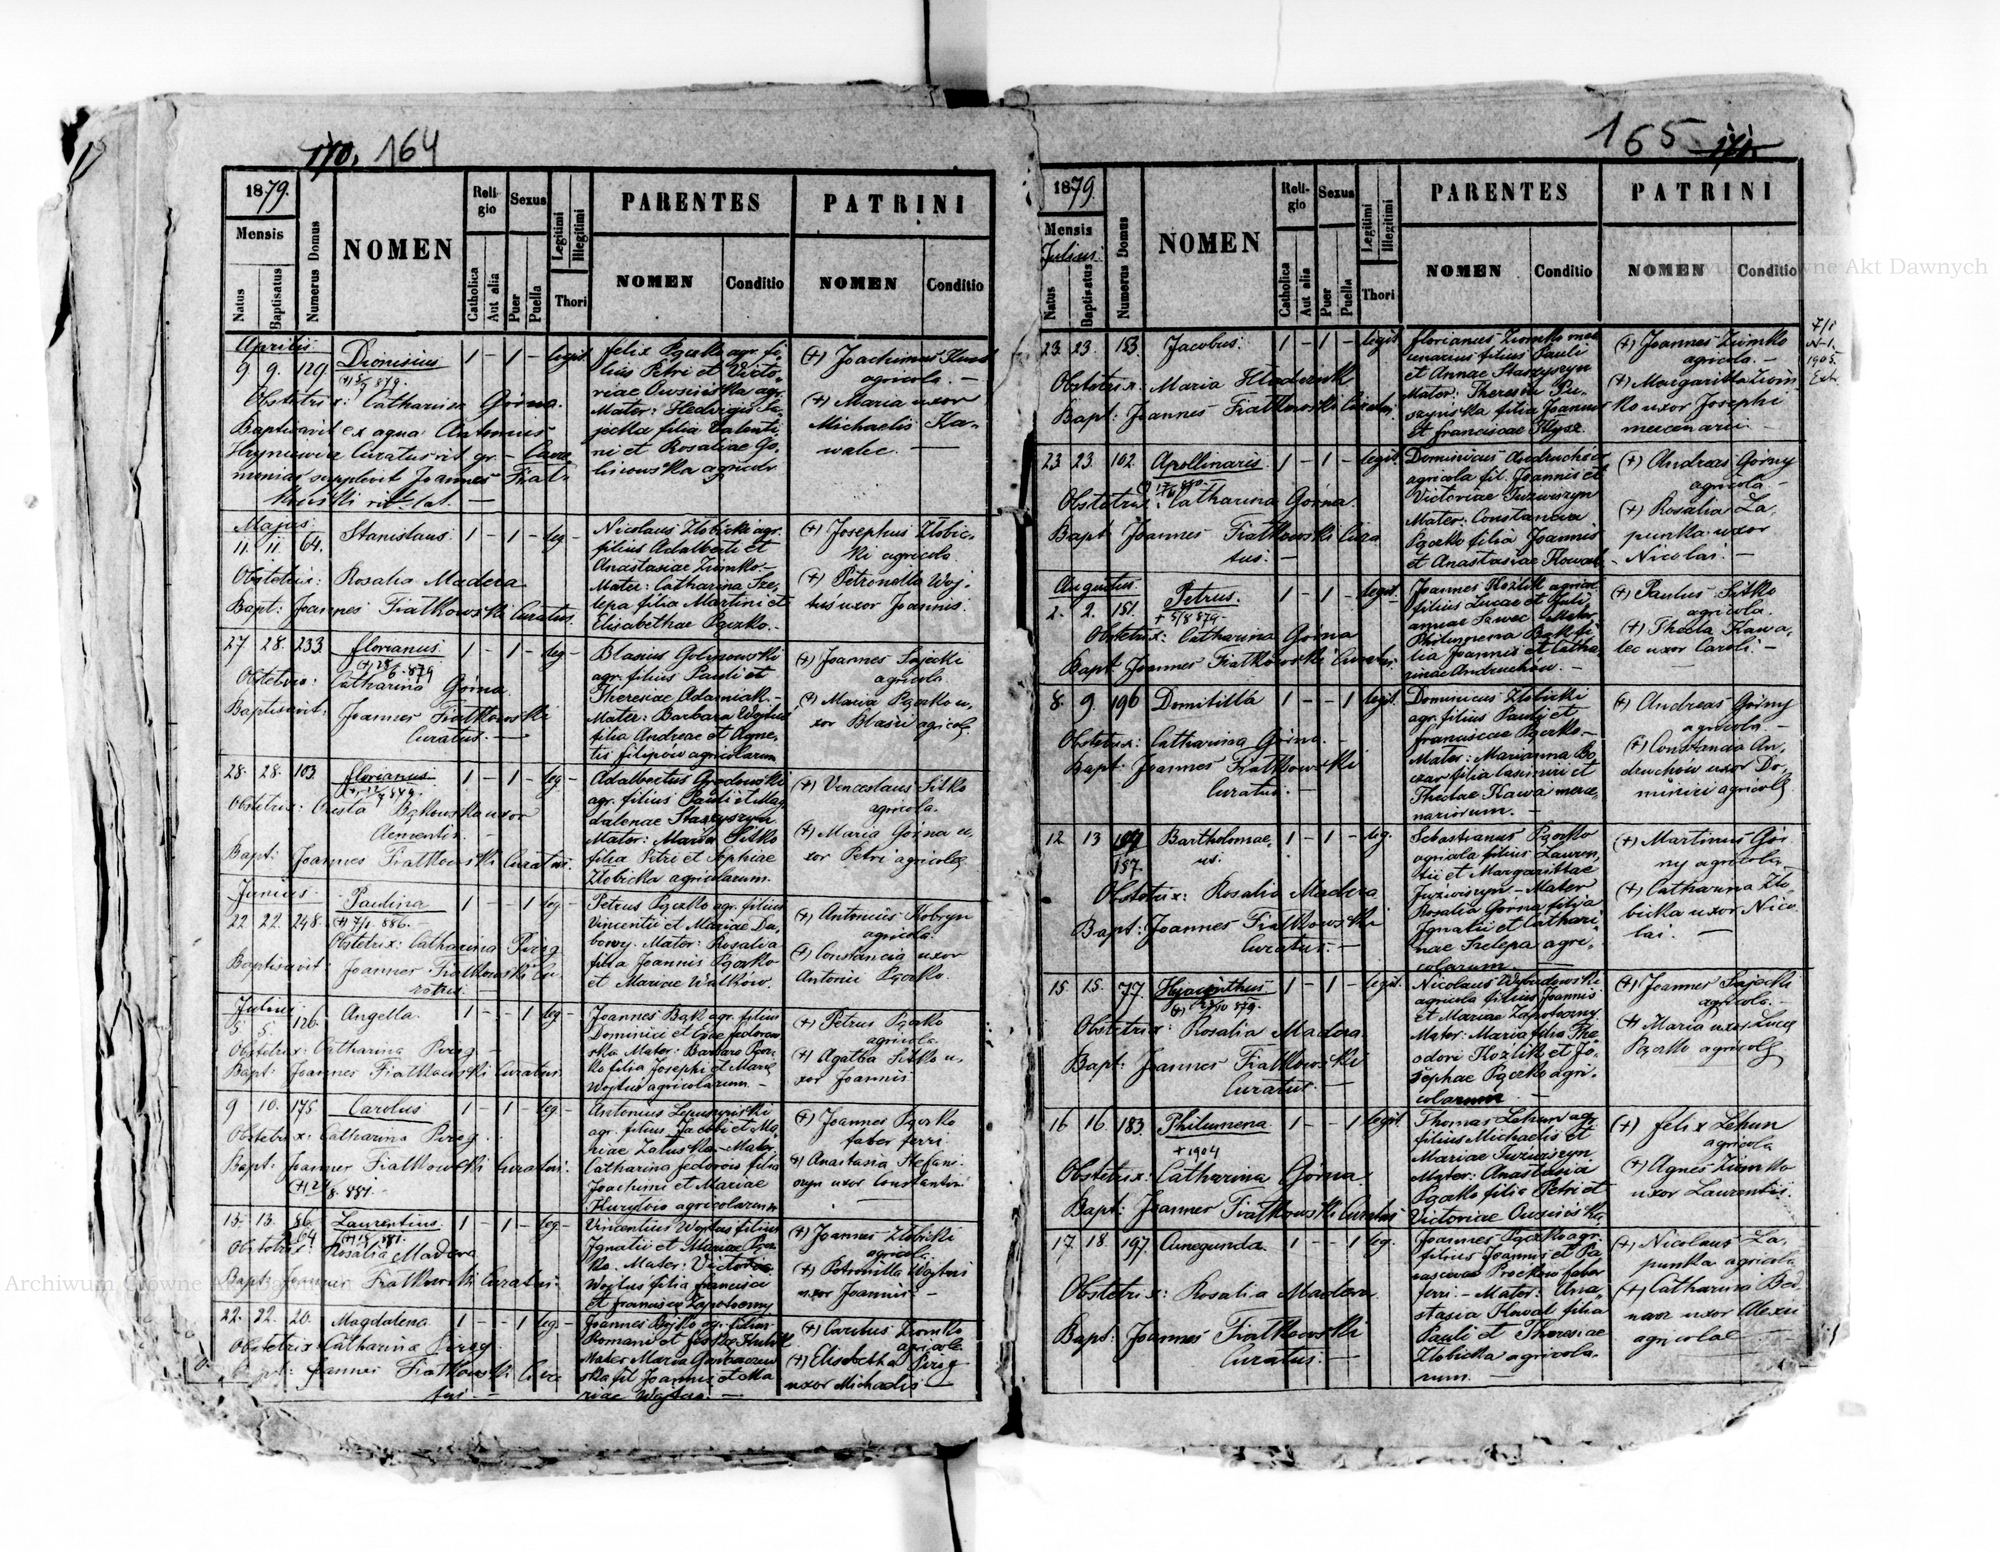 164
1879.
Mensis
Natus
Baptisatus
Numerus Domus
NOMEN
Religio
Catholica
Aut alia
Sexus
Puer
Puella
Legitimi
Illegitimi
Thori
PARENTES
NOMEN
Conditio
PATRINI
NOMEN
Conditio
Aprilis
9. 9. 129. Dionisius 1 - 1 - legit.
Obstetrix: Catharina Górna.
Baptisavit ex aqua Antonius
supplevit Joannes Fiat-
kowski rit. lat. —
Felix Pączko agr. fi-
lius Petri et Victo-
riae Owsińska agr.
Mater: Hedvigis Sa-
jecka filia Valenti-
ni et Rosaliae Go-
agricolr
(+) Joachimus
agricola. —
(+) Maria uxor
Michaelis Ka-
walec. —
Majus
11. 11. 64. Stanislaus 1 - 1 - leg -
Obstetrix: Rosalia Madera
Bapt: Joannes Fiatkowski Curatus.
Nicolaus Złobicki agr.
filius Adalberti et
Anastasiae Ziomko. -
Mater: Catharina Trze-
lepa filia Martini et
Elisabethae Pączko. -
(+) Josephus Złobic-
ki agricola
(+) Petronella Woj-
tuś uxor Joannis.
27. 28. 233. Florianus 1 - 1 - leg -
Obstetrix: Catharina Górna.
Baptisavit: Joannes Fiatkowski
Curatus. —
Blasius Golinowski
agr. filius Pauli et
Theresiae Adamiak. -
Mater: Barbara Wojtuś
filia Andreae et Agne-
tis Filipów agricolarum
(+) Joannes Sajecki
agricola
(+) Maria Pączko u-
xor Blasii agricolæ
28. 28. 103. Florianus 1 - 1 - leg -
Obstetrix: Bąkowska uxor
Clementis. —
Bapt: Joannes Fiatkowski Curatus.
Adalbertus Grodowski
agr. filius Pauli et Mag-
dalenae Staszyszyn
Mater: Maria Sitko
filia Petri et Sophiae
Złobicka agricolarum.
(+) Venceslaus Sitko
agricola.
(+) Maria Górna u-
xor Petri agricolæ
Junius
22. 22. 248. Paulina 1 - - 1 leg -
(+) 7/1. 886.
Obstetrix: Catharina Pirog
Baptisavit: Joannes Fiatkowski Cu-
ratus.
Petrus Pączko agr. filius
Vincentii et Mariae Da-
browy. Mater: Rosalia
filia Joannis Pączko
et Mariae Walków.
(+) Antonius Kobryn
agricola.
(+) Constancia uxor
Antonii Pączko.
Julius
5. 5. 126. Angella. 1 - - 1 leg -
Obstetrix: Catharina Pirog. -
Bapt: Joannes Fiatkowski Curatus.
Joannes Bąk agr. filius
Dominici et Evae
Mater: Barbara Pącz-
ko filia Josephi et Mariae
Wojtuś agricolarum -
(+) Petrus Pączko
agricola.
(+) Agatha Sitko u-
xor Joannis.
9 10. 175 Carolus 1 - 1 - leg -
Obstetrix: Catharina Pirog.
Bapt: Joannes Fiatkowski Curatus.
Antonius Lepuszyński
agr. filius Jacobi et Ma-
riae Zaluska - Mater:
Catharina Fedorów filia
Joachimi et Mariae
agricolarum
(+) Joannes Pączko
faber ferri.
(+) Anastasia Stefani-
szyn uxor Constantini
13. 13. 86. Laurentius. 1 - 1 - leg -
Obstetrix: Rosalia Madera
Bapt: Joannes Fiatkowski Curatus. -
Vincentius Wojtuś filius
Ignatii et Mariae Pącz-
ko. Mater: Victoria
Wojtuś filia Francisci
et Francisca Zapotoczny
(+) Joannes Złobicki
agricola
(+) Petronilla Wojtuś
uxor Joannis. —
22. 22. 20. Magdalena. 1 - - 1 leg -
Obstetrix Catharina Pirog
Bapt: Joannes Fiatkowski Cura-
tus. —
Joannes agr. filius
Romani et
Mater Maria
fil Joannis et Ma-
riae Wojtuś. —
(+) Carolus Ziomko
agricola
(+) Elisabetha Pirog
uxor Michaelis —
165
1879.
Mensis
Julius.
Natus
Baptisatus
Numerus Domus
NOMEN
Religio
Catholica
Aut alia
Sexus
Puer
Puella
Legitimi
Illegitimi
Thori
PARENTES
NOMEN
Conditio
PATRINI
NOMEN
Conditio
23. 23. 153. Jacobus. 1 - 1 - legit.
Obstetrix: Maria Hladernik
Bapt: Joannes Fiatkowski Curatus.
Florianus Ziomko mer-
cenarius filius Pauli
et Annae Staszyszyn
Mater: Theresia Pu-
szyńska filia Joannis
et Franciscae Hlysz.
(+) Joannes Ziomko
agricola. —
(+) Margaritta Ziom-
ko uxor Josephi
mercenarii. —
1905.
23. 23. 102. Apollinaris. 1 - 1 - legit.
Obstetrix: Catharina Górna.
Bapt Joannes Fiatkowski Cura-
tus. —
Dominicus Andruchów
agricola fil. Joannis et
Victoriae Juzwiszyn
Mater: Constancia
Pączko filia Joannis
et Anastasiae Kowal
(+) Andreas Górny
agricola. —
(+) Rosalia Ła-
punka uxor
Nicolai. —
Augustus
2. 2. 151. Petrus. 1 - 1 - legit.
+ 5/8 879 -
Obstetrix: Catharina Górna
Bapt Joannes Fiatkowski Curatus.
Joannes Kozlik agricol
filius Lucae et Juli-
annae Sawec - Mater
Philumena Bąk fi-
lia Joannis et Catha-
rinae Andruchów. —
(+) Paulus Sitko
agricola.
(+) Thecla Kawa-
lec uxor Caroli. —
8. 9. 196 Domitilla 1 - - 1 legit.
Obstetrix: Catharina Górna. —
Bapt: Joannes Fiatkowski
Curatus. —
Dominicus Złobicki
agr. filius Pauli et
Franciscae Pączko. —
Mater: Marianna Bo-
filia Casimiri et
Theclae Kawa merce-
nariorum. —
(+) Andreas Górny
agricola —
(+) Constancia An-
druchów uxor Do-
minici agricolæ
12 13 157. Bartholomae- 1 - 1 - leg.
us.
Obstetrix: Rosalia Madera
Bapt: Joannes Fiatkowski
Curatus. —
Sebastianus Pączko
agricola filius Lauren-
tii et Margarittae
Juzwiszyn - Mater
Rosalia Górna filia
Ignatii et Cathari-
nae Trzelepa agri-
colarum. —
(+) Martinus Gór-
ny agricola
(+) Catharina Zło-
bicka uxor Nico-
lai. —
15 15. 77. Hyacinthus 1 - 1 - legit.
Obstetrix: Rosalia Madera.
Bapt: Joannes Fiatkowski
Curatus. —
Nicolaus Wybudowski
agricola filius Joannis
et Mariae Zapotoczny.
Mater: Maria filia The-
odori Kozlik et Jo-
sephae Pączko agri-
colarum —
(+) Joannes Sajecki
agricola. —
(+) Maria uxor Lucæ
Pączko agricolæ
16 16. 183. Philumena 1 - - 1 legit.
+ 1904
Obstetrix: Catharina Górna.
Bapt: Joannes Fiatkowski Curatus
Thomas Lehun agr.
filius Michaelis et
Mariae Juzwiszyn.
Mater: Anastasia
Pączko filia Petri et
Victoriae Owsińska.
(+) Felix Lehun
agricola
(+) Agnes Ziomko
uxor Laurentii.
17. 18. 197. Cunegunda. 1 - - 1 leg.
Obstetrix: Rosalia Madera.
Bapt: Joannes Fiatkowski
Curatus. —
Joannes Pączko agr.
filius Joannis et Pa-
rascevae Prockow faber
ferri. - Mater: Ana-
stasia Kowal filia
Pauli et Theresiae
Złobicka agricola-
rum. —
(+) Nicolaus Ła-
punka agricola
(+) Catharina Bed-
narz uxor Alexii
agricolae —
Archiwum Główne Akt Dawnych